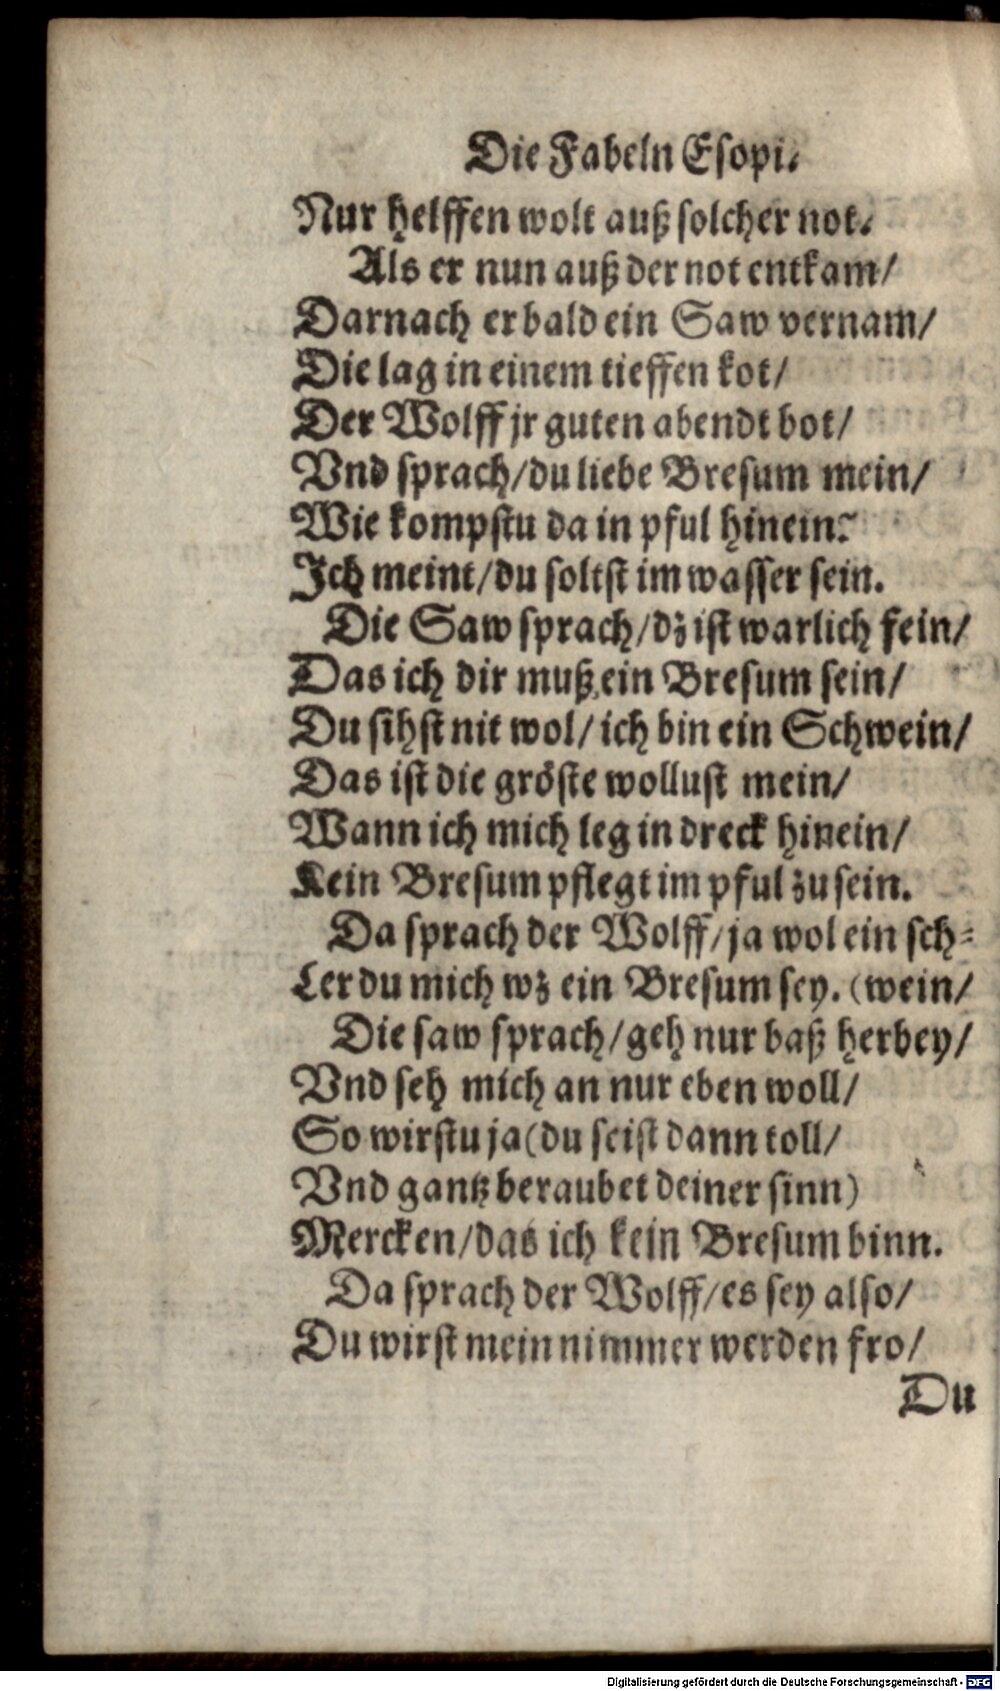 Die Fabeln Esopi.
Nur helffen wolt auß solcher not.
Als er nun auß der not entkam/
Darnach er bald ein Saw vernam/
Die lag in einem tieffen kot/
Der Wolff jr guten abendt bot/
Vnd sprach/du liebe Bresum mein/
Wie kompstu da in pful hinein?
Ich meint/du soltst im wasser sein.
Die Saw sprach/dz ist warlich fein/
Das ich dir muß ein Bresum sein/
Du sihst nit wol/ ich bin ein Schwein/
Das ist die gröste wollust mein/
Wann ich mich leg in dreck hinein/
Kein Bresum pflegt im pful zu sein.
Da sprach der Wolff/ja wol ein sch-
Ler du mich wz ein Bresum sey. (wein/
Die saw sprach/geh nur baß herbey/
Vnd seh mich an nur eben woll/
So wirstu ja(du seist dann toll/
Vnd gantz beraubet deiner sinn)
Mercken/das ich kein Bresum binn.
Da sprach der Wolff/es sey also/
Du wirst mein nimmer werden fro/
Du
Digitalisierung gefördert durch die Deutsche Forschungsgemeinschaft - DFG